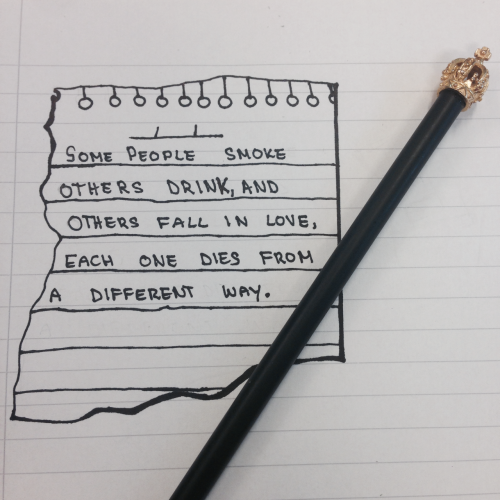 SOME PEOPLE SMOKE
OTHERS DRINK, AND
OTHERS FALL IN LOVE,
EACH ONE DIES FROM
A DIFFERENT WAY.